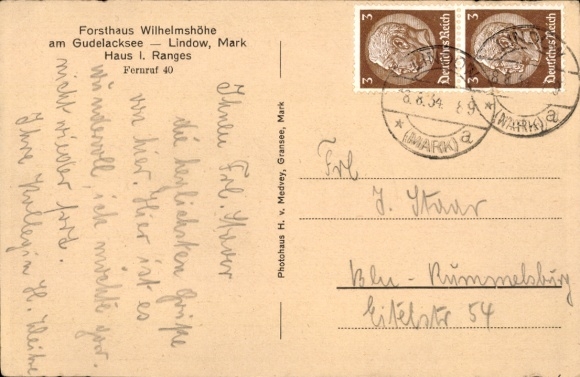 Forsthaus Wilhelmshöhe
am Gudelacksee — Lindow, Mark
Haus I. Ranges
Fernruf 40
Ihnen Frl. Staar
die herzlichsten Grüße
von hier. Hier ist es
wundervoll, ich möchte gar
nicht wieder fort.
Ihre Kollegin H.
Photohaus H. v. Medvey, Gransee, Mark
3 Deutsches Reich
3 Deutsches Reich
8.8.34
* (MARK) a
* (MARK) a
Frl
J. Staar
Bln-Rummelsburg
Eitelstr 54